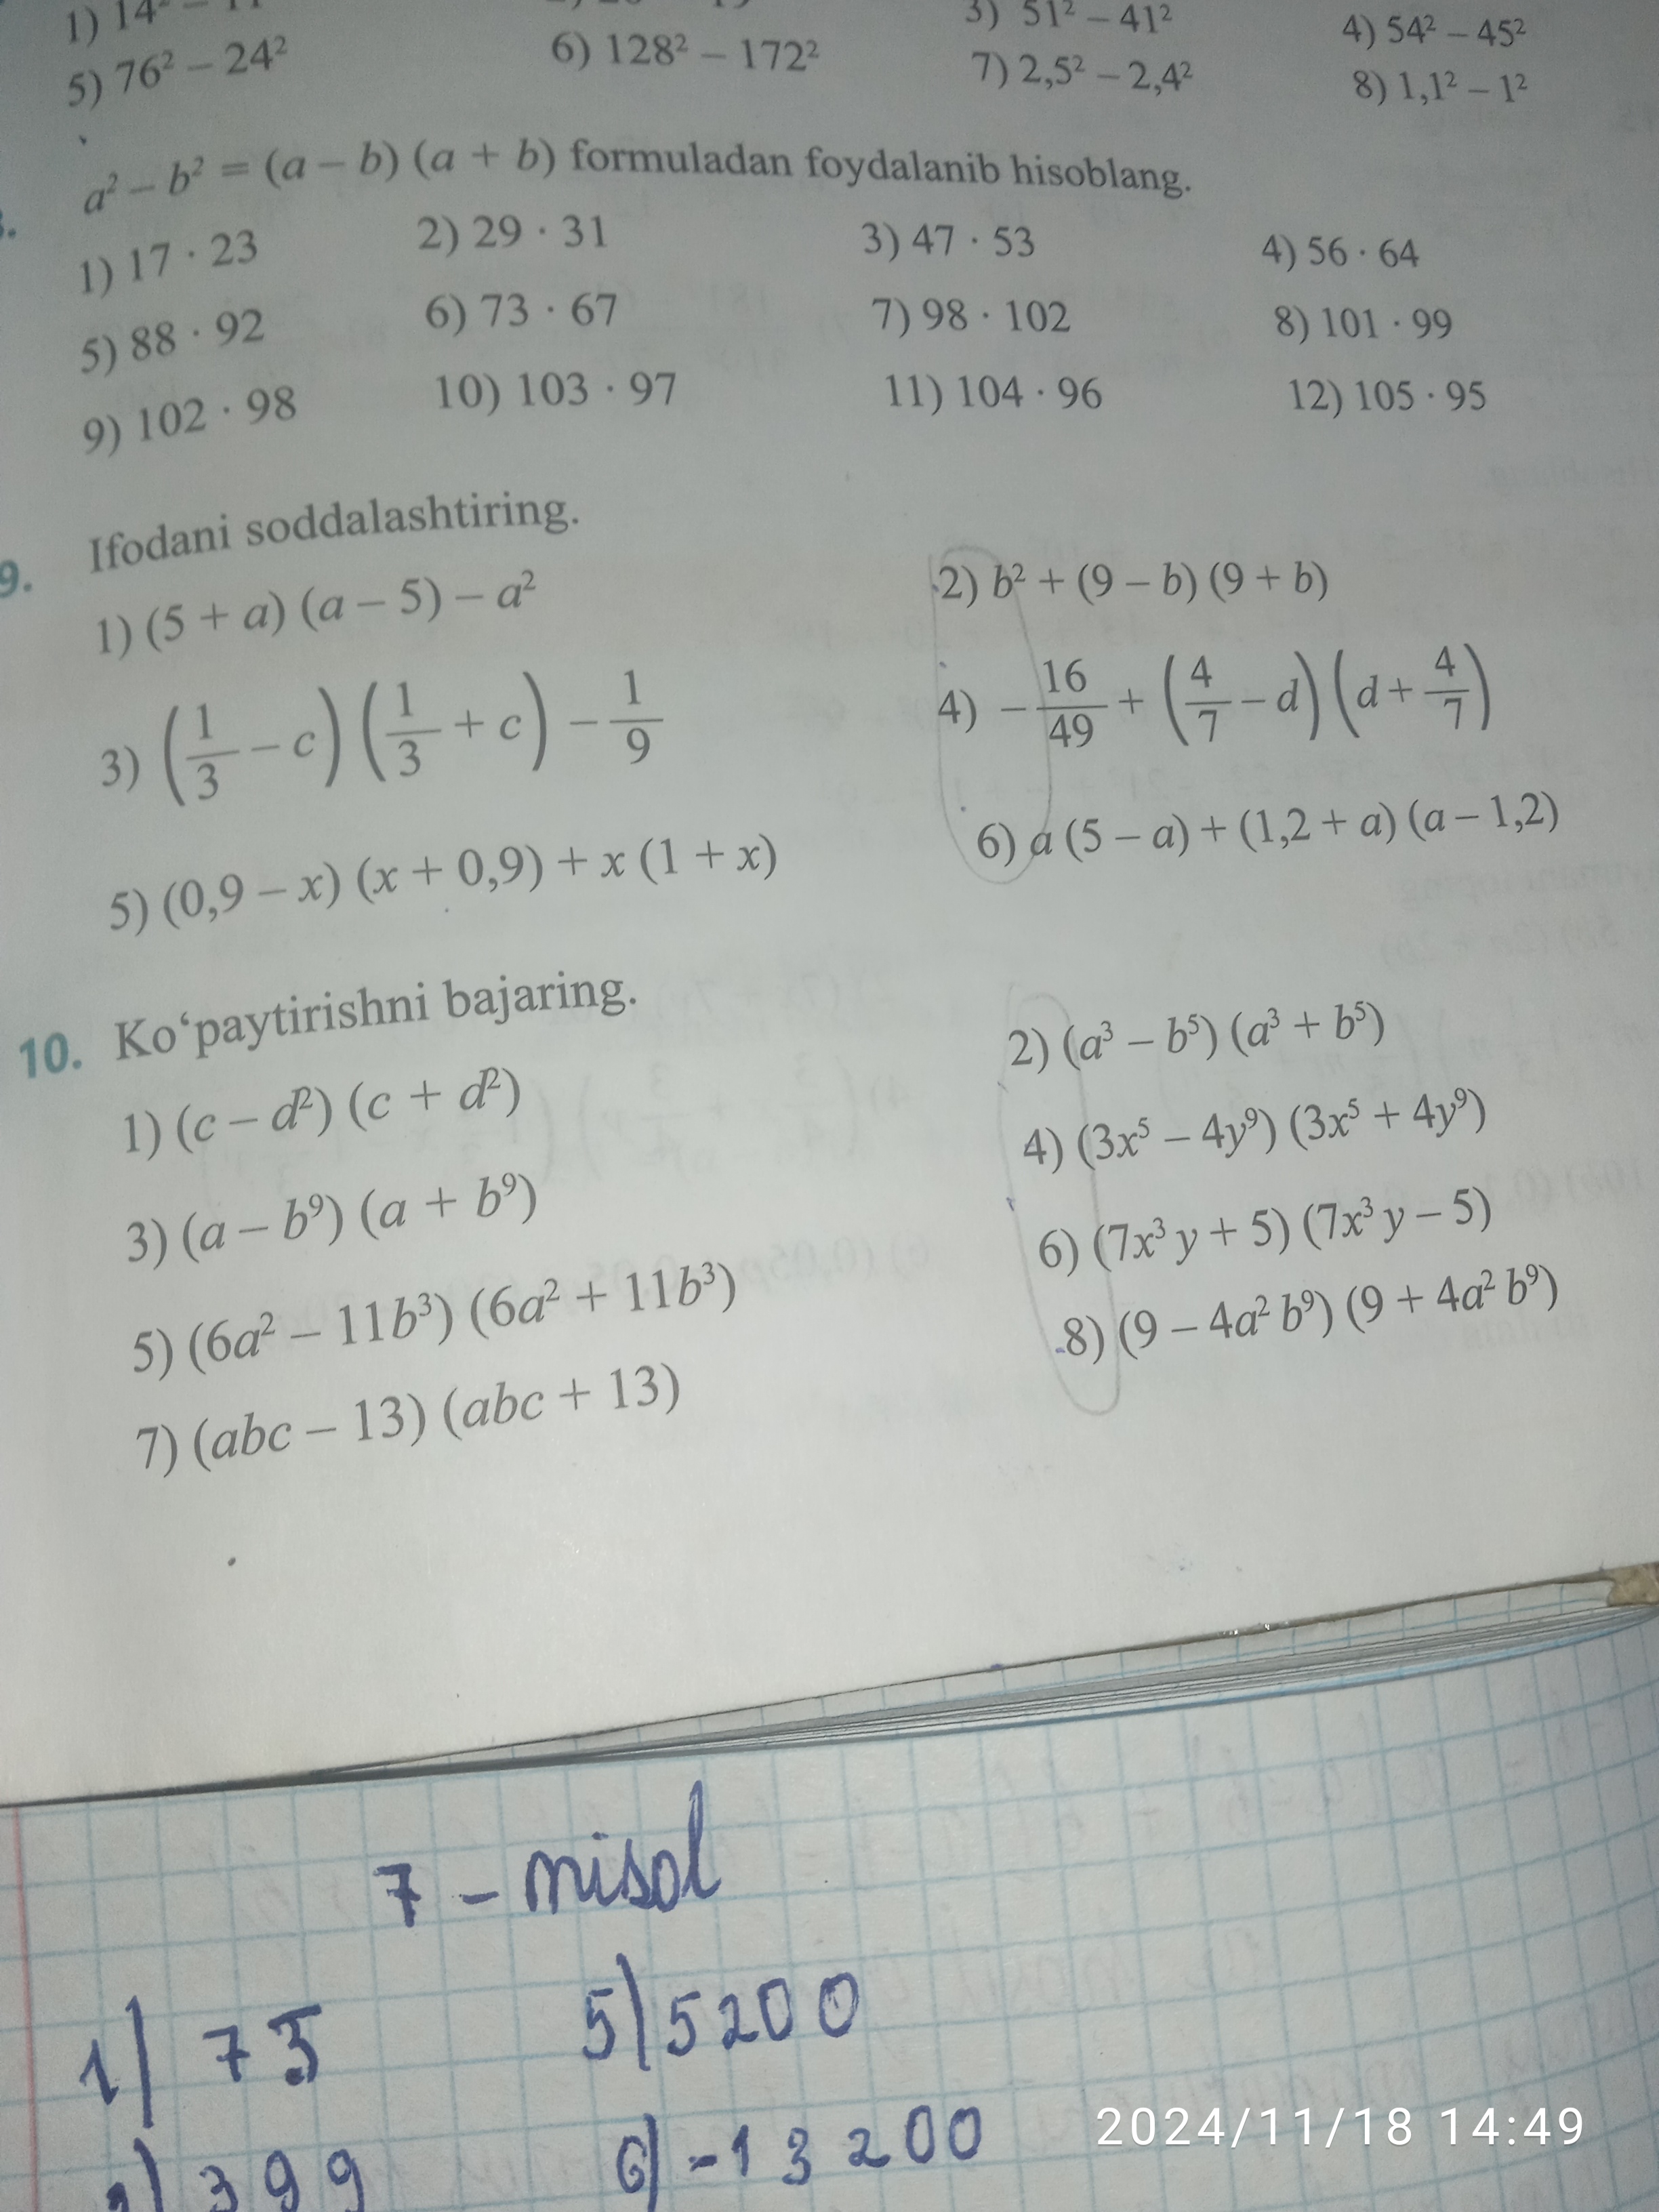 1) 14² – 11
3) 51² – 41²
4) 54² – 45²
5) 76² – 24²
6) 128² – 172²
7) 2,5² – 2,4²
8) 1,1² – 1²
a² – b² = (a – b) (a + b) formuladan foydalanib hisoblang.
1) 17 · 23
2) 29 · 31
3) 47 · 53
4) 56 · 64
5) 88 · 92
6) 73 · 67
7) 98 · 102
8) 101 · 99
9) 102 · 98
10) 103 · 97
11) 104 · 96
12) 105 · 95
9. Ifodani soddalashtiring.
1) (5 + a) (a – 5) – a²
2) b² + (9 – b) (9 + b)
3) (1/3 – c) (1/3 + c) – 1/9
4) – 16/49 + (4/7 – d) (d + 4/7)
5) (0,9 – x) (x + 0,9) + x (1 + x)
6) a (5 – a) + (1,2 + a) (a – 1,2)
10. Ko‘paytirishni bajaring.
1) (c – d²) (c + d²)
2) (a³ – b⁵) (a³ + b⁵)
3) (a – b⁹) (a + b⁹)
4) (3x⁵ – 4y⁹) (3x⁵ + 4y⁹)
5) (6a² – 11b³) (6a² + 11b³)
6) (7x³ y + 5) (7x³ y – 5)
7) (abc – 13) (abc + 13)
8) (9 – 4a² b⁹) (9 + 4a² b⁹)
7 – misol
1) 75
5) 5200
2) 399
6) -13200
2024/11/18 14:49